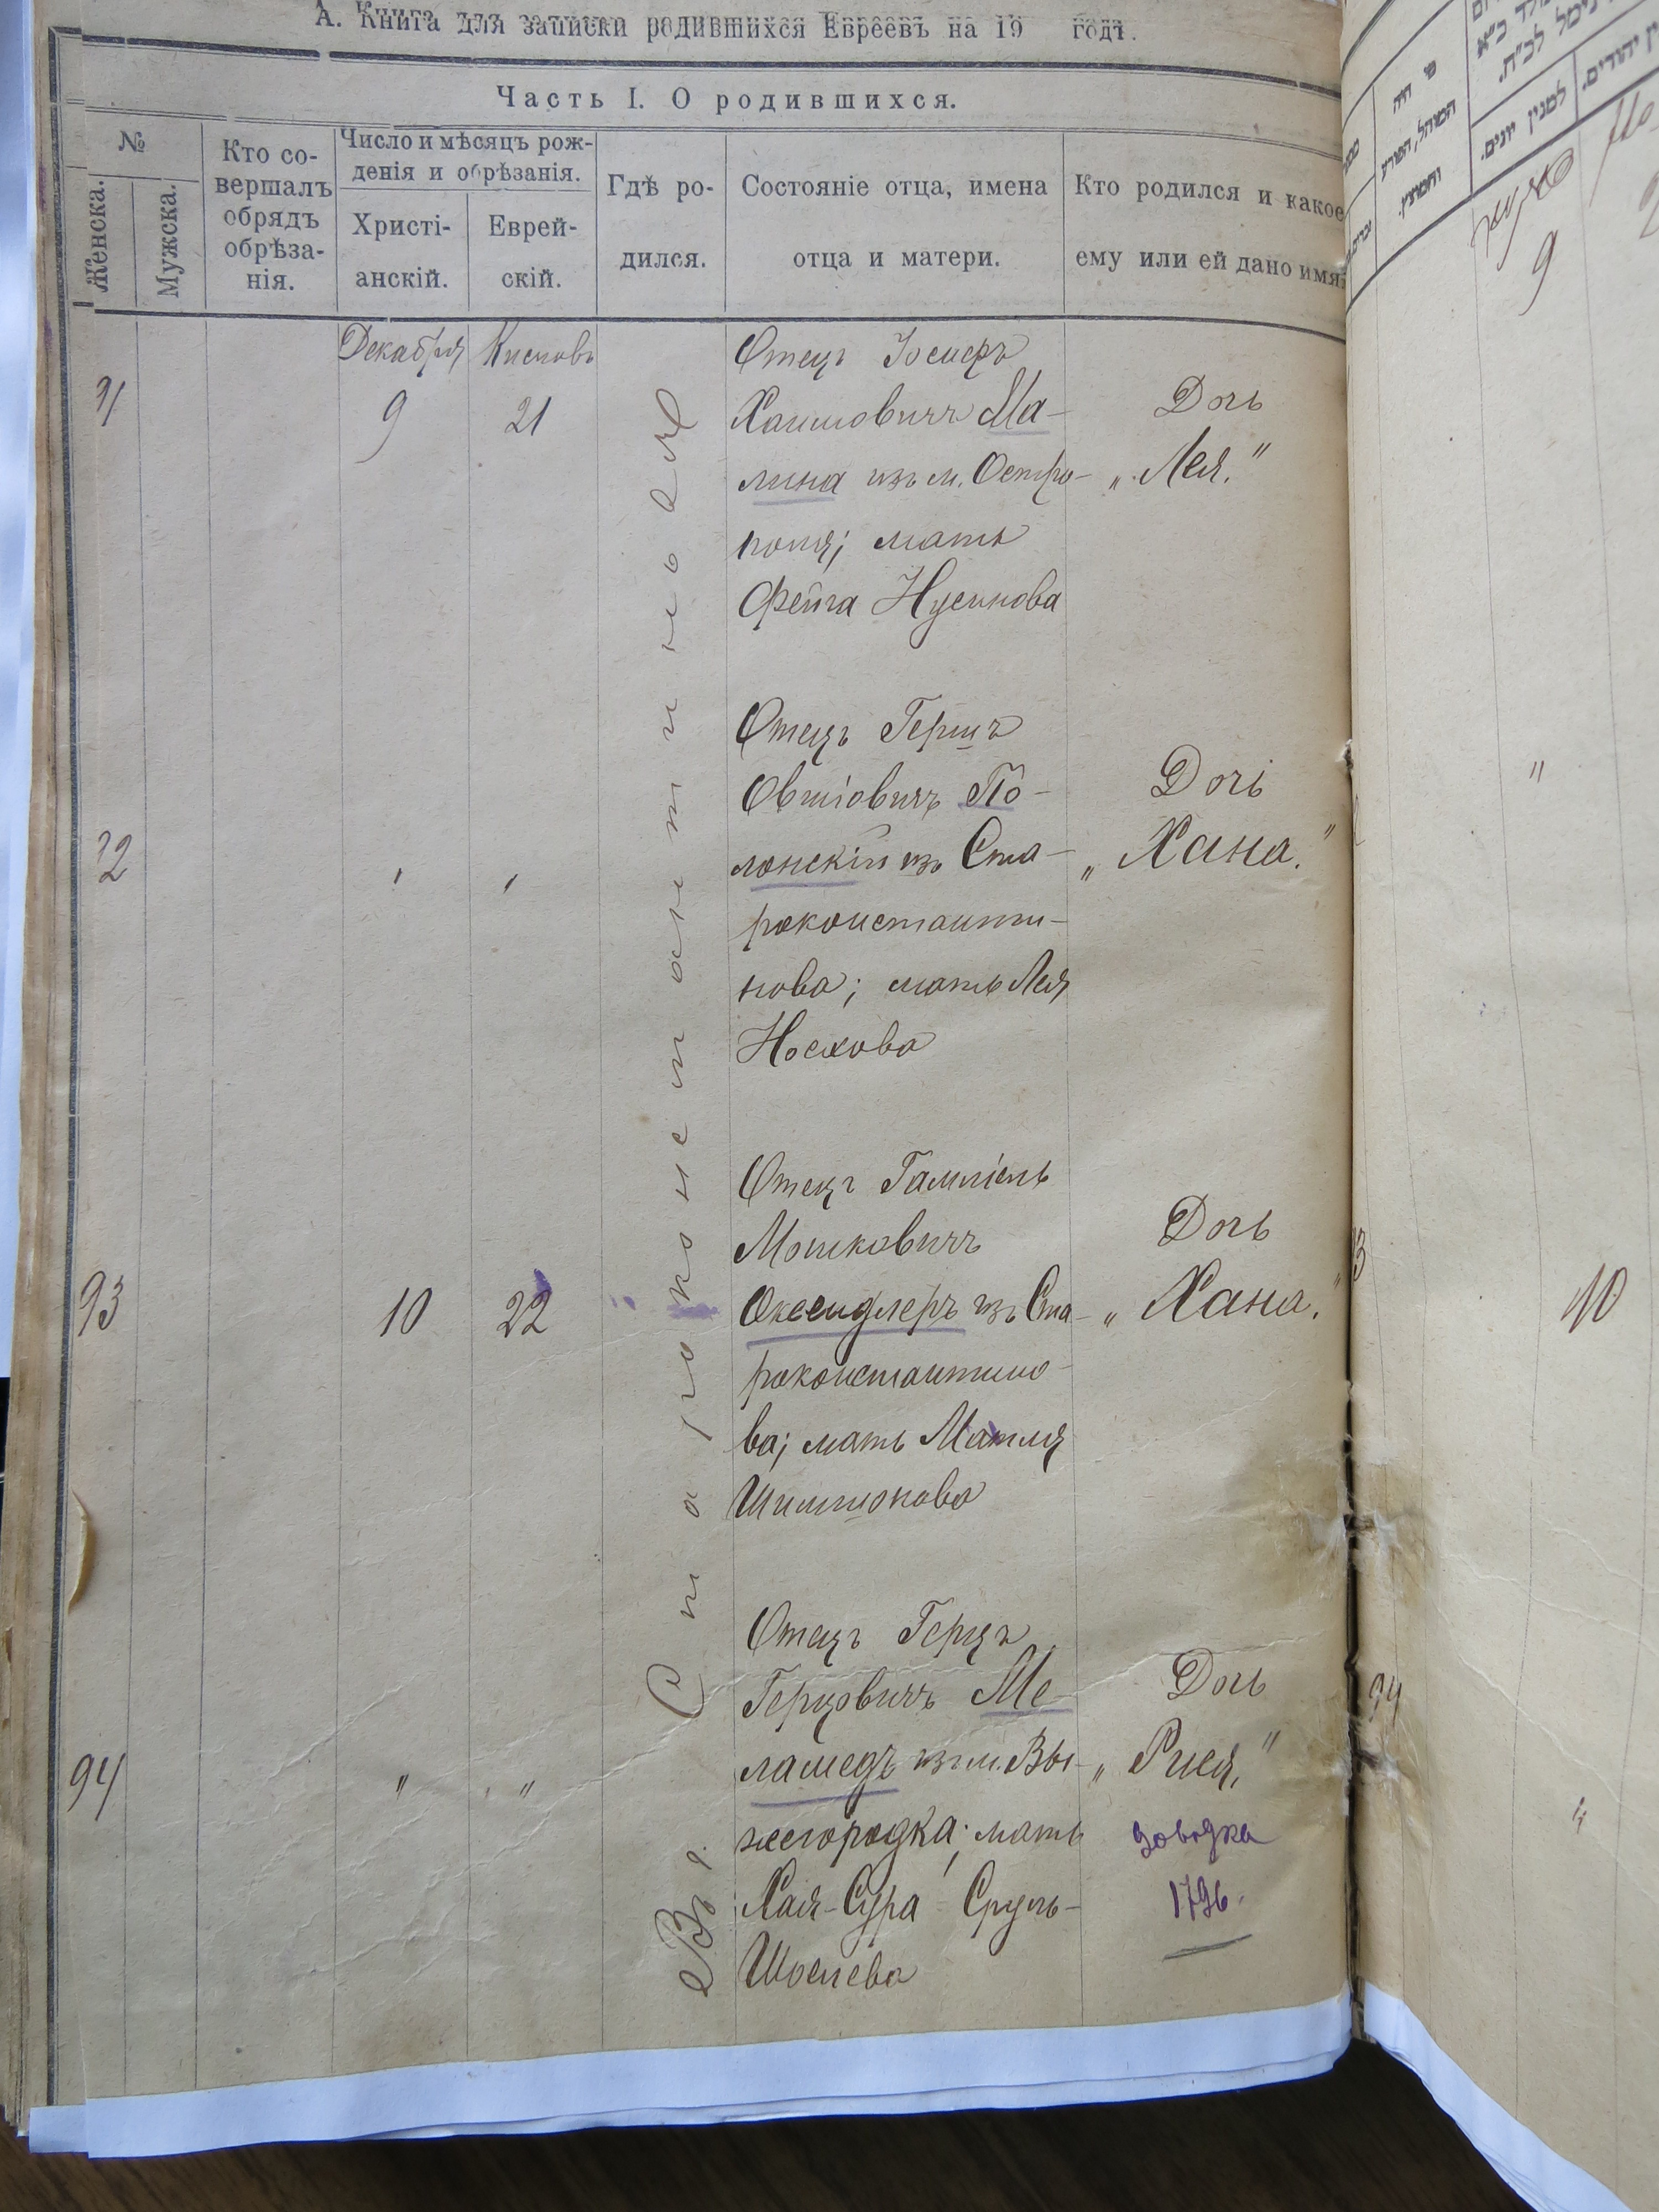 А. Книга для записки родившихся Евреевъ на 19 годъ.
Часть I. О родившихся.
№
Женска.
Мужска.
Кто со-
вершалъ
обрядъ
обрѣза-
нія.
Число и мѣсяцъ рож-
денія и обрѣзанія.
Христі-
анскій.
Еврей-
скій.
Гдѣ ро-
дился.
Состояніе отца, имена
отца и матери.
Кто родился и какое
ему или ей дано имя
Въ г. Староконстантиновѣ
Декабря
Кислевъ
9
21
Отецъ Іосифъ
Хаимовичъ Ма-
лина изъ м. Остро-
поля; мать
Фейга Нусинова
Дочь
„Лея."
Отецъ Гершъ
Овшіовичъ По-
лонскій изъ Ста-
роконстанти-
нова; мать Лея
Носхова
Дочь
„Хана."
93
10
22
Отецъ Гамліель
Мошковичъ
Оксендлеръ изъ Ста-
роконстантино-
ва; мать Матля
Шимшонова
Дочь
„Хана."
94
"
"
Отецъ Герцъ
Герцовичъ Ме-
ламедъ изъ м. Вы-
жегородка; мать
Хая-Сура Сруль-
Шоелева
Дочь
„Рися,"
довідка
1796.
מי היה
המוהל, הפורע
והמוצץ.
למנין יונים.
9
"
10
94
"